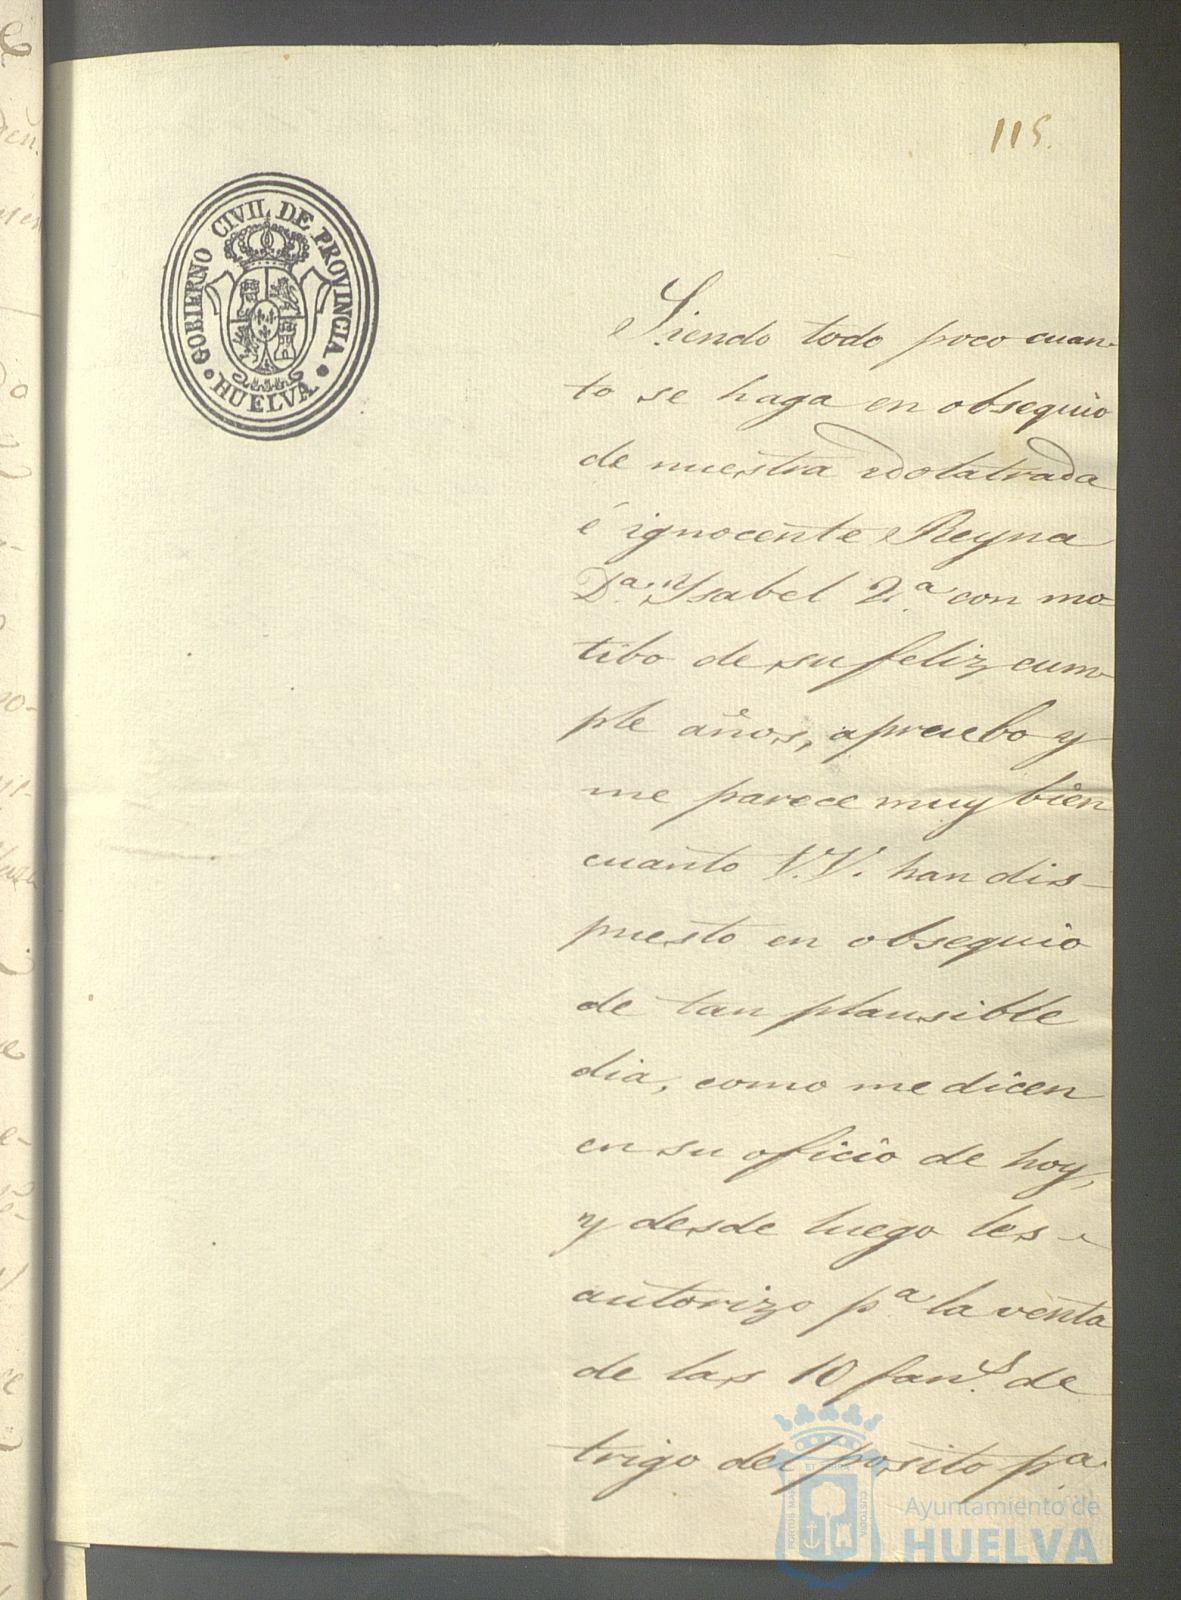 115.
GOBIERNO CIVIL DE PROVINCIA
HUELVA
Siendo todo poco cuan-
to se haga en obsequio
de nuestra ydolatrada
é ignocente Reyna
D.ª Ysabel 2.ª con mo
tibo de su feliz cum-
ple años, apruebo y
me parece muy bien
cuanto V.V. han dis-
puesto en obsequio
de tan plausible
dia, como me dicen
en su oficio de hoy,
y desde luego les
autorizo pª la venta
de las 10 fan.s de
trigo del posito pª
Ayuntamiento de
HUELVA